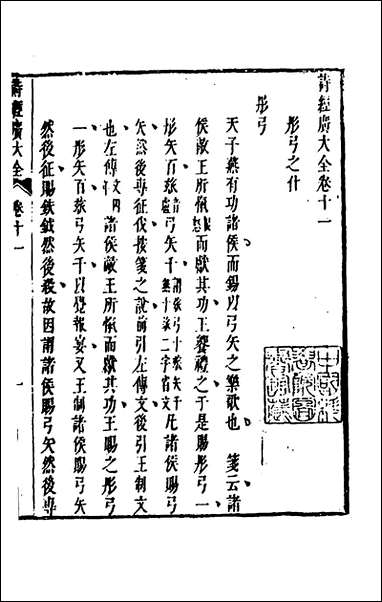 詩經廣大全卷十一
彤弓之什
彤弓
天子燕有功諸侯而錫以弓矢之樂歌也 箋云諸
侯敵王所愾而獻其功王饗禮之于是賜彤弓一
彤矢百玈弓矢千凡諸侯賜弓
矢然後專征伐按箋之說前引左傳文後引王制文
也左傳諸侯敵王所愾而獻其功王賜之彤弓
一彤矢百玈弓矢千以覺報宴又王制諸侯賜弓矢
然後征賜鈇鉞然後殺故因謂諸侯賜弓矢然後專
詩經廣大全 卷十一 一